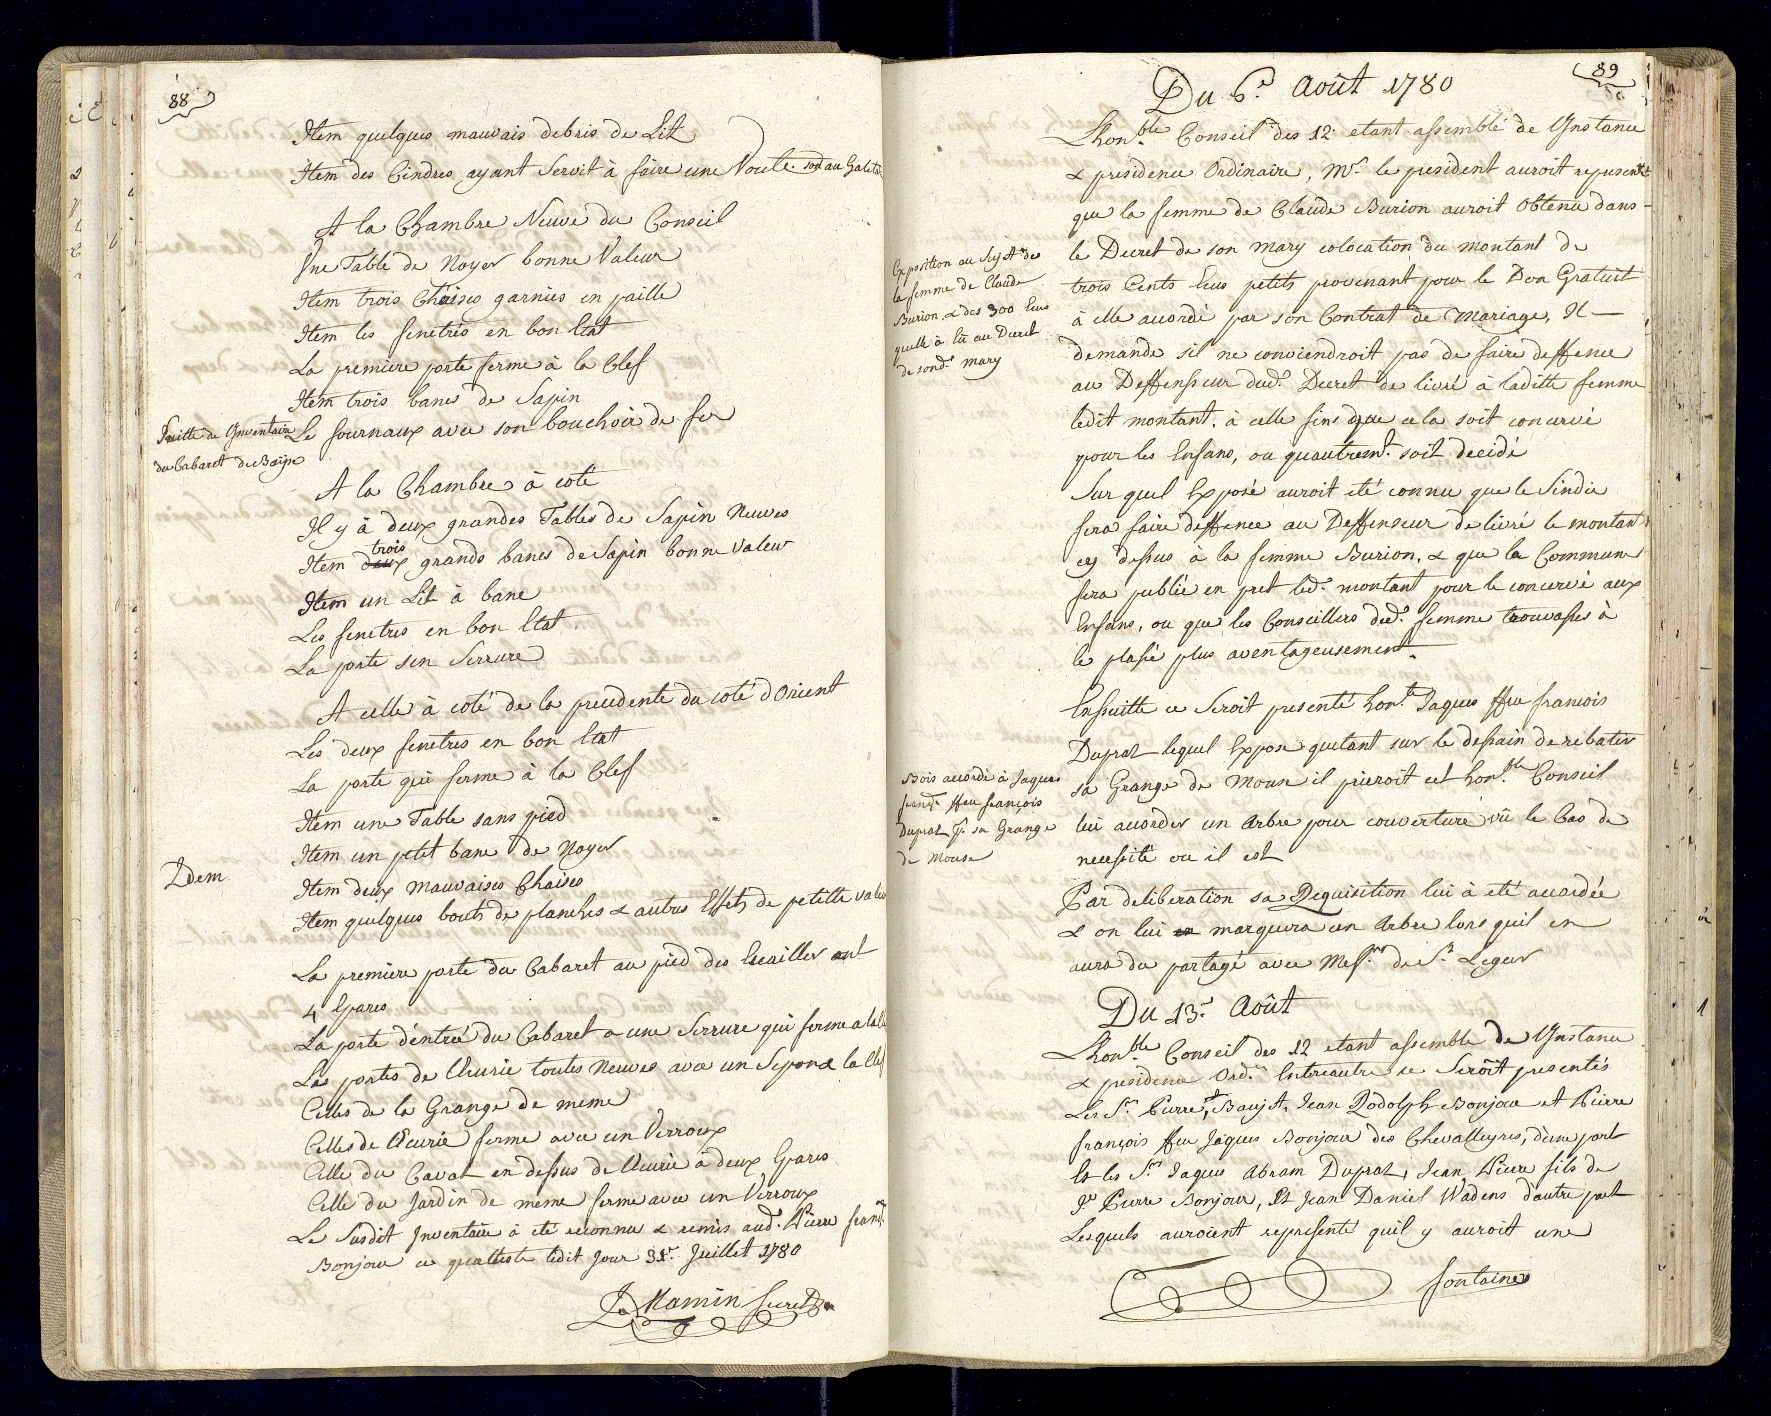 88
Item quelques mauvais debris de Lit
Item des Cindres ayant Servit à faire une Voute sont au Galeta
A la Chambre Neuve du Conseil
Une Table de Noyer bonne Valeur
Item trois Chaises garnies en paille
Item les fenetres en bon Etat
La premiere porte ferme à la Clef
Item trois bancs de Sapin
Suitte de Ynventaire
du Cabaret de Baÿse
Le fournaux avec son bouchoir de fer
A la Chambre à coté
Il y à deux grandes Tables de Sapin Neuves
Item deux trois grands bancs de Sapin bonne valeur
Item un Lit à banc
Les fenetres en bon Etat.
La porte sen Serrure
A celle à coté de la precedente du coté d'Orient
Les deux fenetres en bon Etat
La porte qui ferme à la Clef
Item une Table sans pied
Item un petit banc de Noyer
Idem
Item deux mauvaises Chaises
Item quelques bouts de planches & autres Effets de petitte valeu
La premiere porte du Cabaret au pied des Ecailler ont
4 Epares
La porte d'entreé du Cabaret a une Serrure qui ferme a la Cle
Les portes de l'Ecurie toutes Neuves avec un & la Clef
Celles de la Grange de meme
Celles de l'Ecurie ferme avec un Verroux
Celle du Cavat en dessus de l'Ecurie à deux Epares
Celle du Jardin de meme ferme avec un Verroux
Le Susdit Inventaire à été reconnu & remis aud.t Pierre fran.s
Bonjour ce quatteste ledit Jour 31.e Juillet 1780
Mamin Secret.re
89
Du 6.e Août 1780
Lhon.ble Conseil des 12 etant assemblé de Ynstance
& presidence Ordinaire, Mr. le president auroit represente
que la femme de Claude Burion auroit Obtenu dans
le Decret de son mary colocation du montant de
trois Cents Ecus petits provenant pour le Don Gratuit
à elle accordé par son Contrat de Mariage, Il
demande sil ne conviendroit pas de faire deffence
au Deffenseur dud.t Decret de livré à laditte femme
ledit montant. à celle fins que cela soit concervé
pour les Enfans, ou quautrem.t soit decidé
Exposition au Sujet de
la femme de Claude
Burion & des 300 Ecus
quelle à eû au Decret
de sond.t mary
Sur quel Exposé auroit eté connu que le Sindic
fera faire deffence au Deffenseur de livré le montant
cy dessus à la femme Burion, & que la Commune
fera publié en pret led.t montant pour le concervé aux
Enfans, ou que les Conseillers de d.e femme trouvasses à
le plasié plus aventageusement.
Ensuitte ce Seroit presenté hon.te Jaques ffeu francois
Duprat lequel Expose quetant sur le dessain de rebatir
sa Grange de Moun il prieroit cet hon.ble Conseil
lui accorder un Arbre pour couverture vû le Cas de
necessité ou il est
Bois accordé à Jaques
franç.s ffeu françois
Duprat p.r sa Grange
de Moun
Par deliberation sa Requisition lui à eté accordée
& on lui en marquera un Arbre lors quil en
aura du partagé avec Mess.rs de S.t Leger
Du 13.e Août
Lhon.ble Conseil des 12 etant assemble de Ynstance
& presidence Ord.re Entreautre se Seroît presentés
Les S.rs Pierre, Baujet, Jean Rodolph Bonjour et Pierre
françois ffeu Jaques Bonjour des Chevalleyres, d'une part
Et les S.rs Jaques Abram Duprat, Jean Pierre fils de
J.n Pierre Bonjour, Et Jean Daniel Wadens d'autre part
Lesquels auroient represente quil y auroit une
fontaine